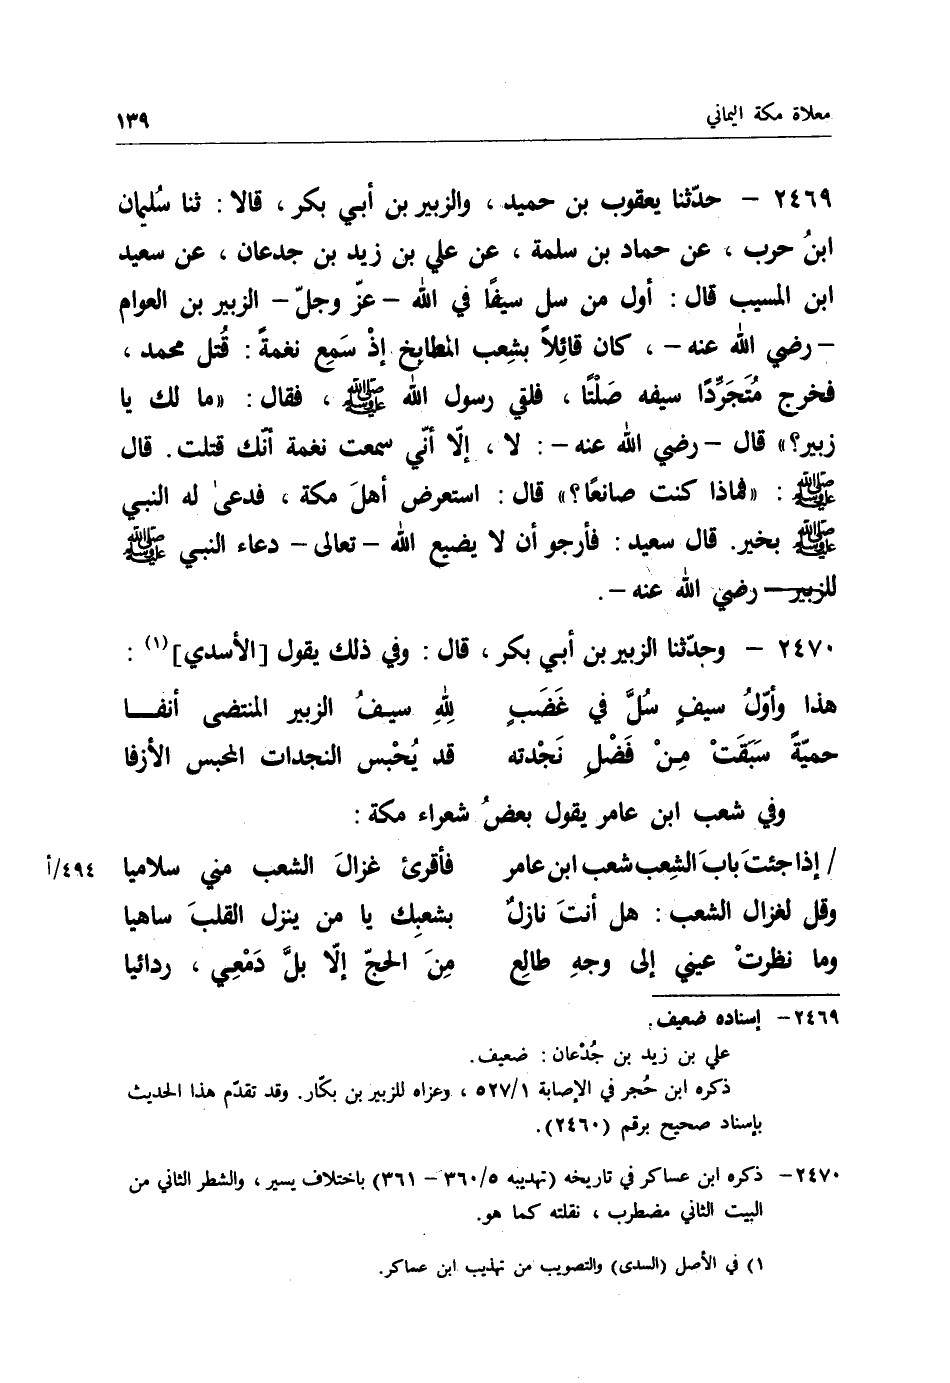 معلاة مكة اليماني ١٣٩
٢٤٦٩ - حدّثنا يعقوب بن حميد ، والزبير بن أبي بكر ، قالا : ثنا سُليمان
ابنُ حرب ، عن حماد بن سلمة ، عن علي بن زيد بن جدعان ، عن سعيد
ابن المسيب قال : أول من سل سيفًا في الله -عزّ وجلّ- الزبير بن العوام
-رضي الله عنه- ، كان قائِلاً بشِعب المطابخ إذْ سَمِع نغمةً : قُتل محمد ،
فخرج مُتَجَرِّدًا سيفه صَلْتًا ، فلقي رسول الله ﷺ ، فقال : «ما لك يا
زبير؟» قال -رضي الله عنه- : لا ، إلّا أنّي سمعت نغمة أنّك قتلت. قال
ﷺ : «فماذا كنت صانعًا؟» قال : استعرض أهلَ مكة ، فدعىٰ له النبي
ﷺ بخير. قال سعيد : فأرجو أن لا يضيع الله -تعالى- دعاء النبي ﷺ
للزبير- رضي الله عنه -.
٢٤٧٠ - وحدّثنا الزبير بن أبي بكر ، قال : وفي ذلك يقول [الأسدي](١) :
هذا وأوّلُ سيفٍ سُلَّ في غَضَبٍ للهِ سيفُ الزبير المنتضى أنفا
حميّةً سَبَقَتْ مِنْ فَضْلِ نَجْدته قد يُحْبس النجدات المحبس الأزفا
وفي شعب ابن عامر يقول بعضُ شعراء مكة :
/ إذا جئتَ بابَ الشِعب شعب ابن عامر فأقرئ غزالَ الشعب مني سلاميا ٤٩٤/أ
وقل لغزال الشعب : هل أنتَ نازلٌ بشعبِك يا من ينزل القلبَ ساهيا
وما نظرتْ عيني إلى وجهِ طالِع مِنَ الحجّ إلّا بلَّ دَمْعِي ، ردائيا
٢٤٦٩- إسناده ضعيف.
علي بن زيد بن جُدْعان : ضعيف.
ذكره ابن حُجر في الإصابة ٥٢٧/١ ، وعزاه للزبير بن بكّار. وقد تقدّم هذا الحديث
بإسناد صحيح برقم (٢٤٦٠).
٢٤٧٠- ذكره ابن عساكر في تاريخه (تهذيبه ٣٦٠/٥ - ٣٦١) باختلاف يسير ، والشطر الثاني من
البيت الثاني مضطرب ، نقلته كما هو.
١) في الأصل (السدى) والتصويب من تهذيب ابن عساكر.